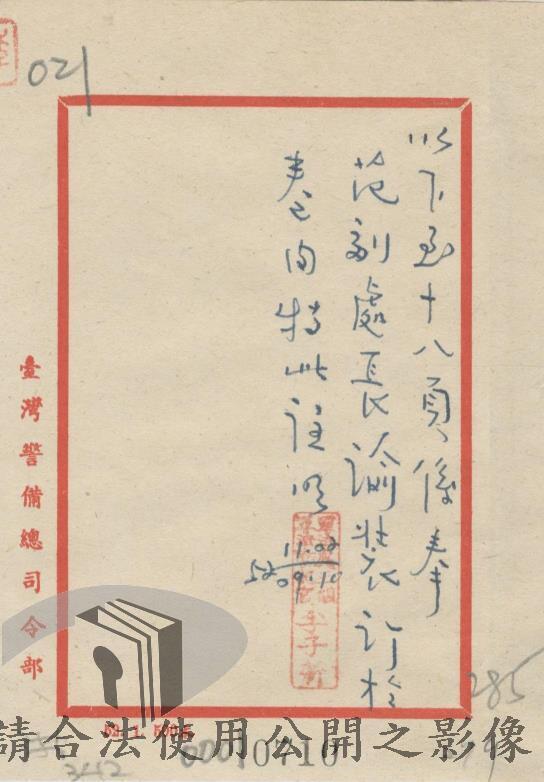 021
以下至十八頁係奉
范副處長諭裝訂於
卷內特此註明
11.02
52 09.10
臺灣警備總司令部
285
請合法使用公開之影像